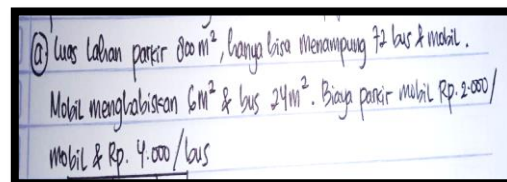 ⓐ Luas Lahan parkir 800 m², hanya bisa menampung 72 bus & mobil.
Mobil menghabiskan 6m² & bus 24m². Biaya parkir mobil Rp. 2.000/
mobil & Rp. 4.000/bus